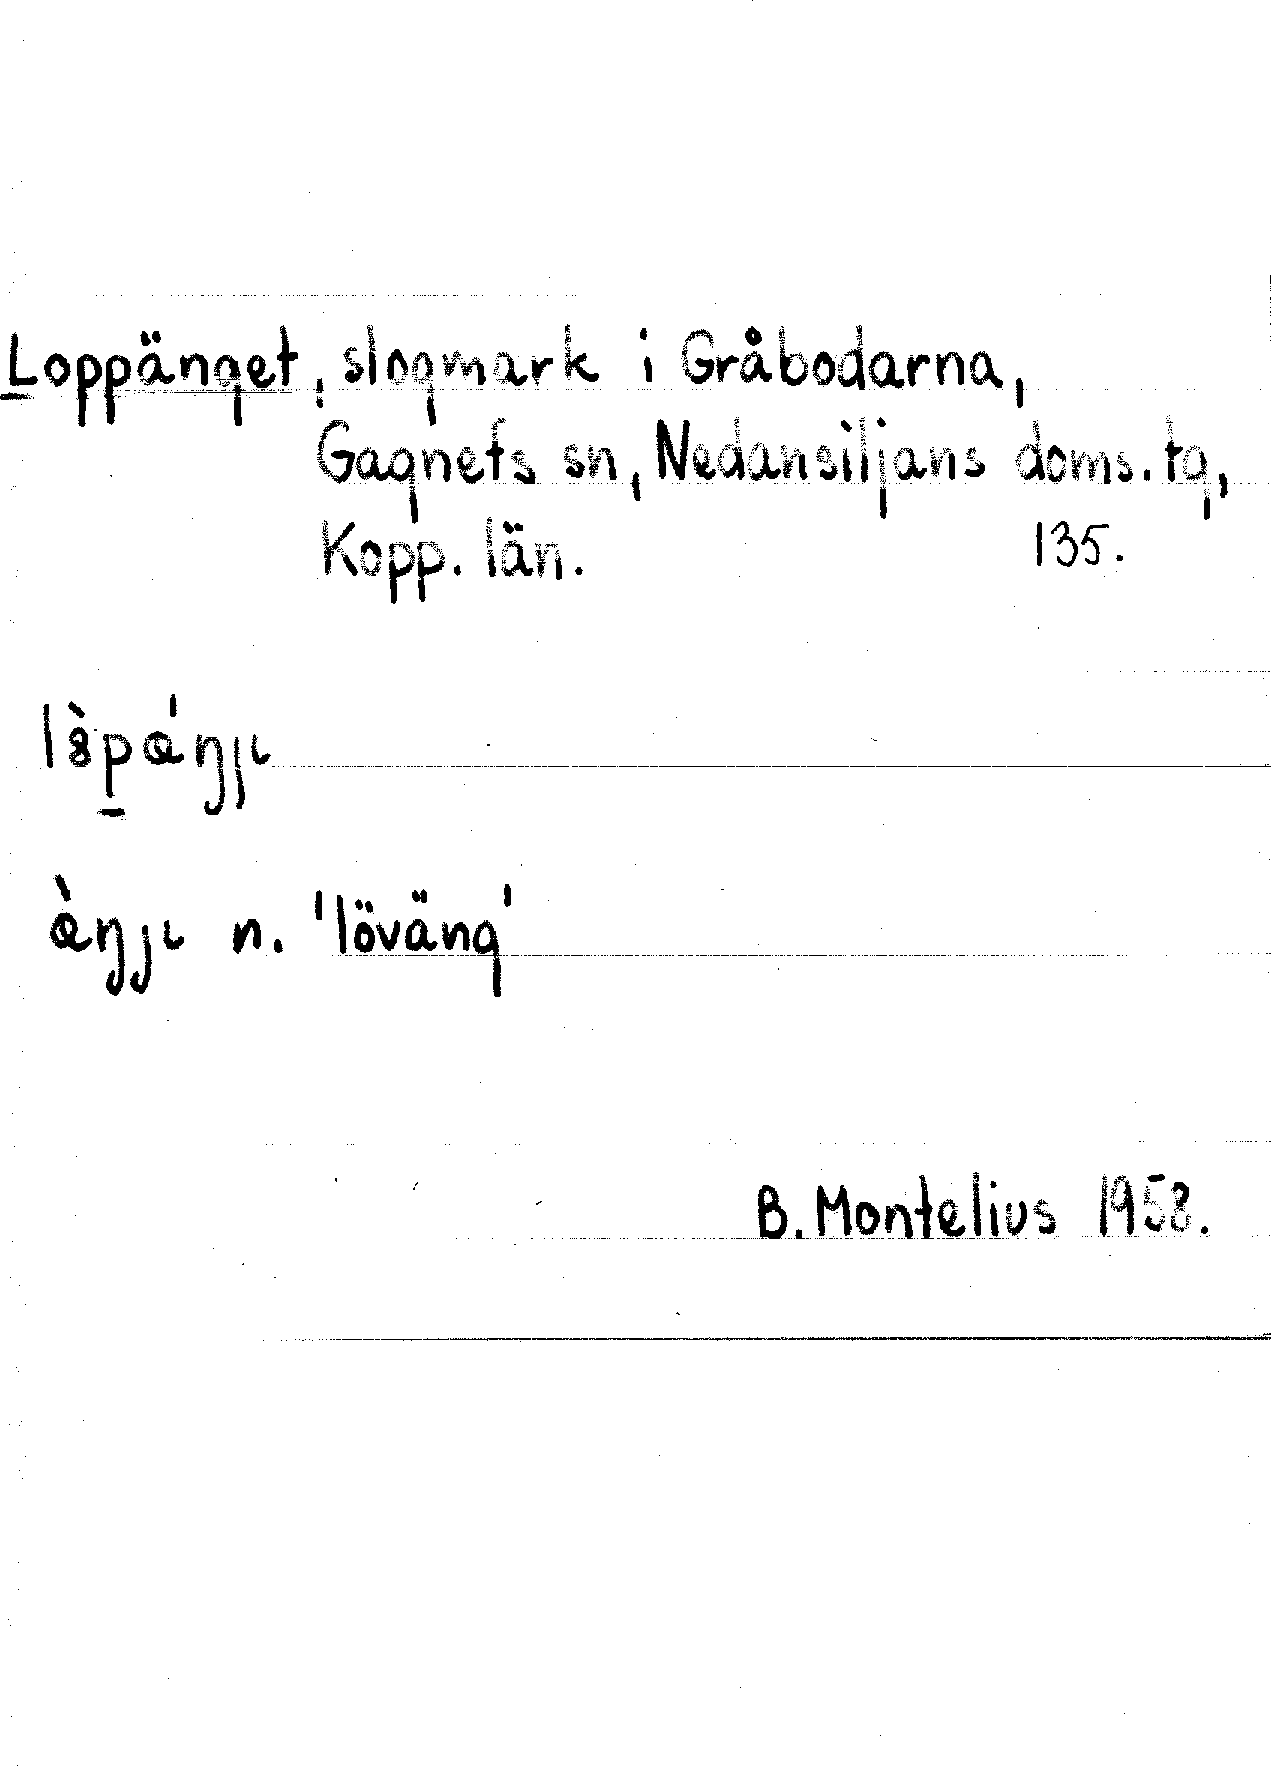 Loppänget, slogmark i Gråbodarna,
Gagnefs sn, Nedansiljans doms. tg,
Kopp. län. 135.
l8̀pa̢ŋ́jɩ
à̢ŋjɩ n. 'löväng'
B. Montelius 1958.